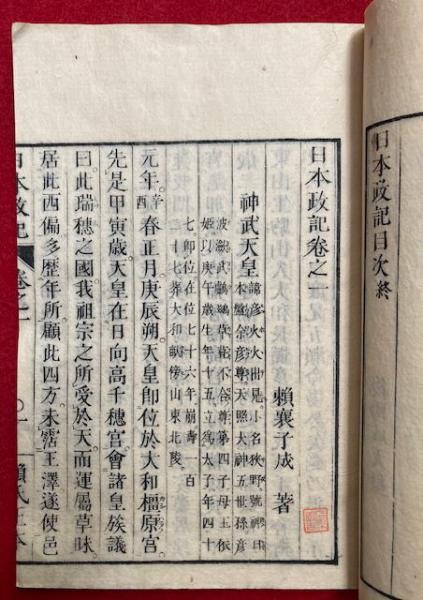 日本政記目次終
日本政記卷之一
賴襄子成著
神武天皇
諱彦火火出見。小名狹野。號神日
本磐余彦尊天照大神五世孫彦
波瀲武鸕鷀草葺不合尊第四子母玉依
姬以庚午歲生年十五立爲太子年四十
七卽位在位七十六年崩壽一百
二十七葬大和畝傍山東北陵
元年。辛酉春正月。庚辰朔。天皇卽位於大和橿原宮。
先是甲寅歲。天皇在日向高千穗宮。會諸皇族議
曰。此瑞穗之國。我祖宗之所受於天。而運屬草昧
居此西偏。多歷年所。顧此四方。未霑王澤。遂使邑
日本政記 卷之一 〇一 賴氏正本